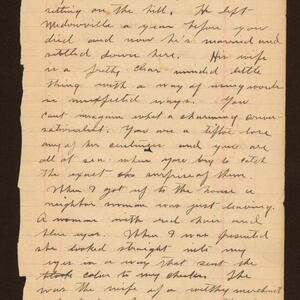 sitting on the hill. He left
Meadowville a year before you
died and now he's married and
settled down here. His wife
is a pretty clear minded little
thing with a way of using words
in unexpected ways. You
cant imagine what a charming conver-
sationalist. You are a tiptoe lose
any of her and you are
all at sea when you try to catch
the exact surprise of them
When I got up to the house a
neighbor woman was just leaving.
A woman with red hair and
blue eyes. When I was presented
she looked straight into my
eyes in a way that sent the
color to my cheeks. She
was the wife of a wealthy merchant